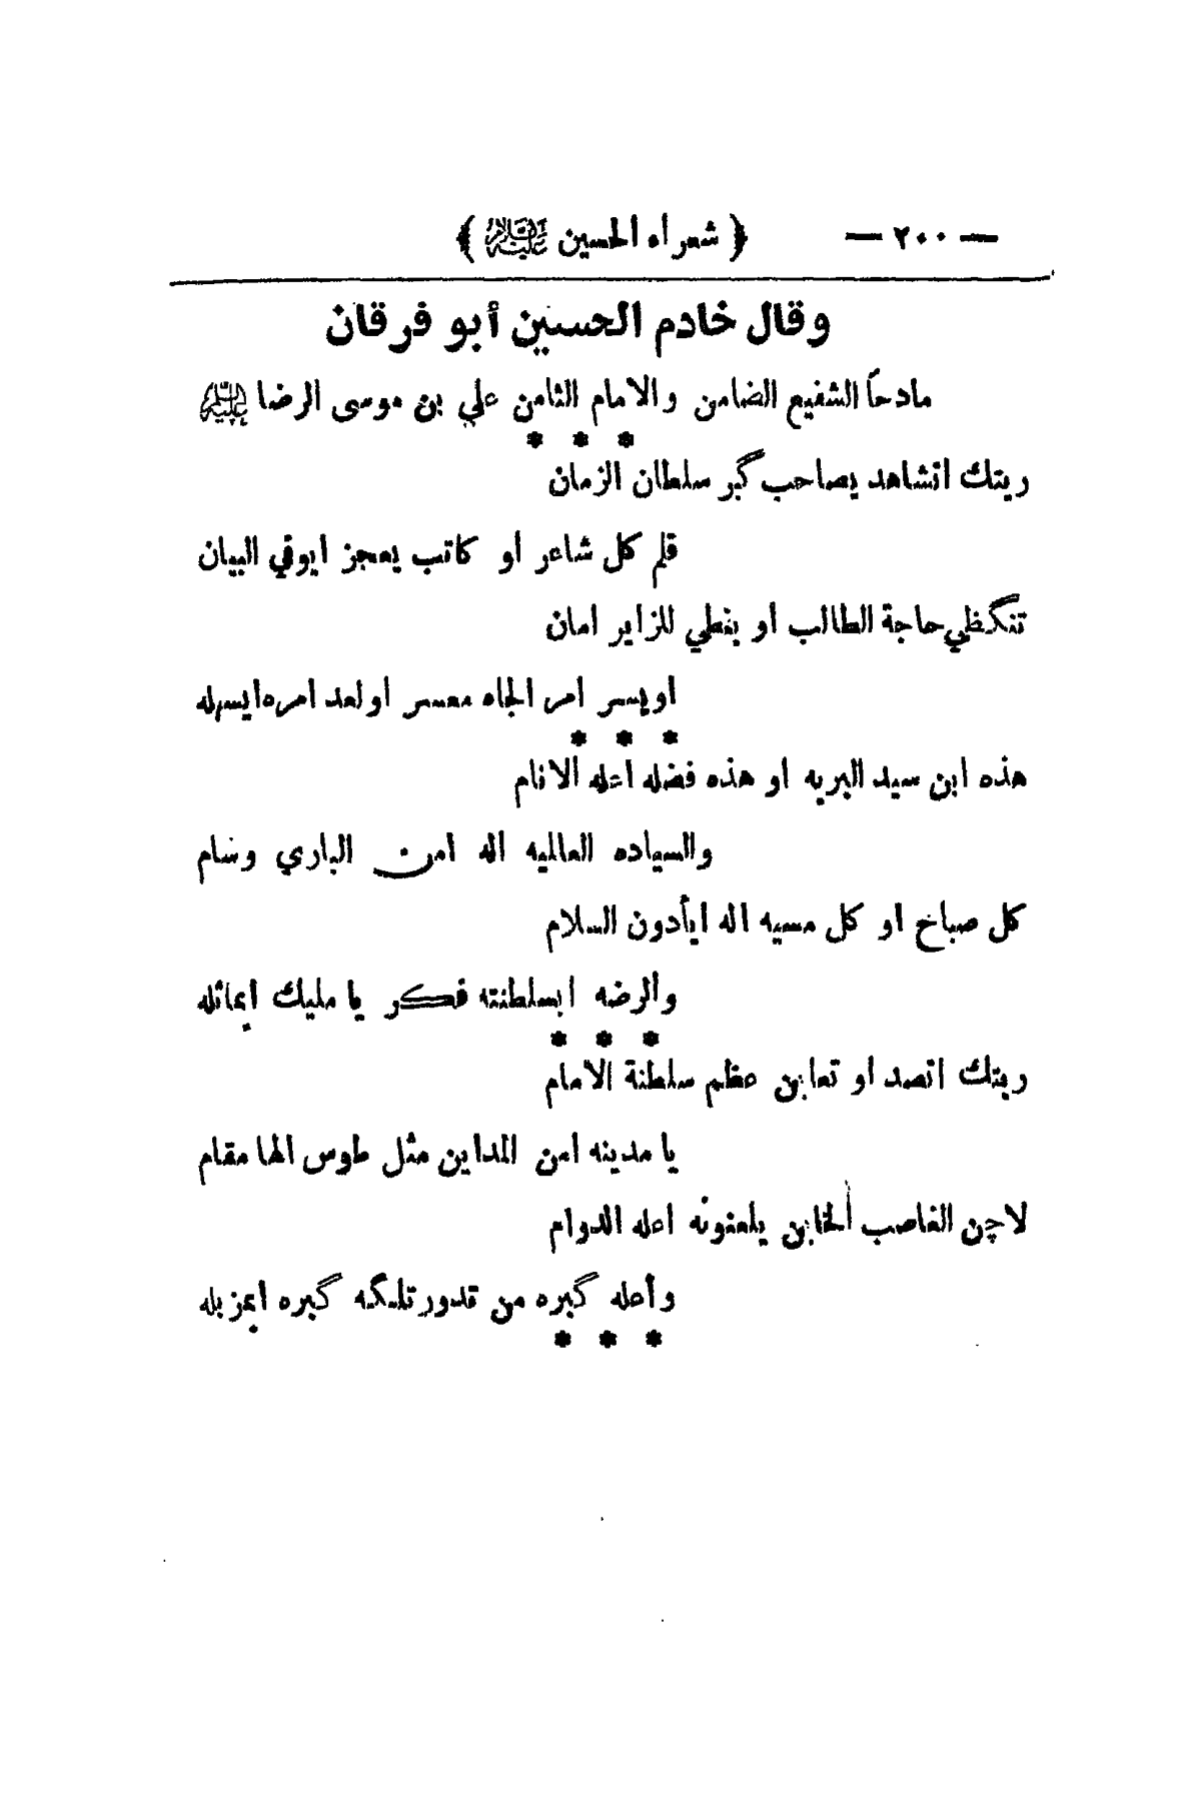 — ٢٠٠ — ﴿ شعراء الحسين عليه السلام ﴾
وقال خادم الحسين أبو فرقان
مادحاً الشفيع الضامن والامام الثامن علي بن موسى الرضا عليه السلام
* * *
ريتك اتشاهد يصاحب گبر سلطان الزمان
قلم كل شاعر او كاتب يعجز ايوفي البيان
تنگظي حاجة الطالب او ينطي للزاير امان
اويسر امر الجاه معسر اولعد امره ايسهله
* * *
هذه ابن سيد البريه او هذه فضله اعله الانام
والسياده العاليه اله امن الباري وسام
كل صباح او كل مسيه اله ايأدون السلام
والرضه ابسلطنته فكر يا مليك ايماثله
* * *
ريتك اتصد او تعاين عظم سلطنة الامام
يا مدينه امن المداين مثل طوس الها مقام
لاچن الغاصب الخاين يلعنونه اعله الدوام
وأعله گبره من تدور تلگيه گبره ابمزبله
* * *